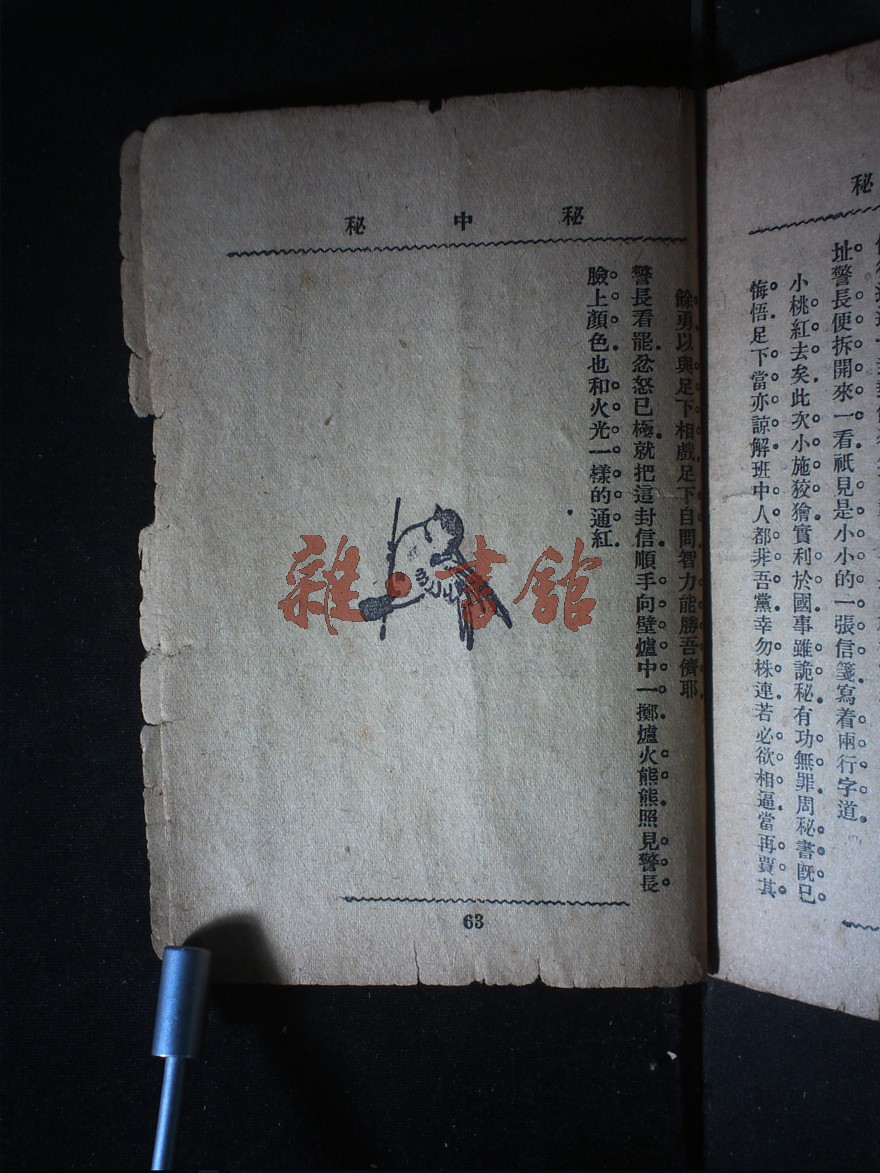 秘
址警長便拆開來一看祇見是小小的一張信箋寫着兩行字道
小桃紅去矣此次小施狡獪實利於國事雖詭秘有功無罪周秘書旣已
悔悟足下當亦諒解班中人都非吾黨幸勿株連若必欲相逼當再賈其
秘中秘
餘勇以與足下相戲足下自問智力能勝吾儕耶
警長看罷忿怒已極就把這封信順手向壁爐中一擲爐火熊熊照見警長
臉上顏色也和火光一樣的通紅
63
雜·書館